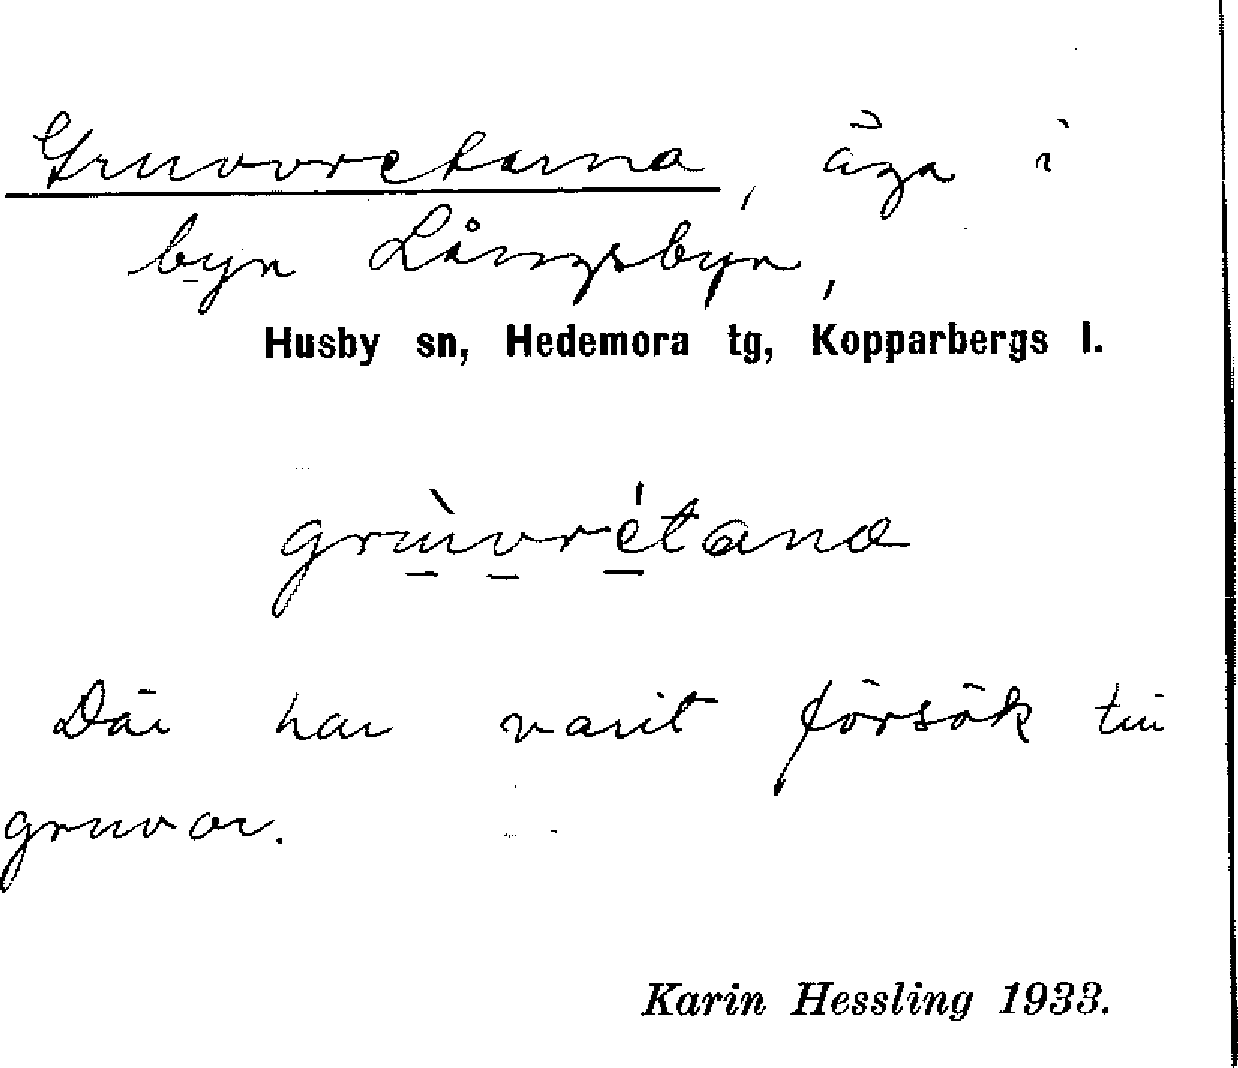 Gruvvretarna, äga i
byn Långsbyn,
Husby sn, Hedemora tg, Kopparbergs l.
grùvvrétana
Där har varit försök till
gruvor.
Karin Hessling 1933.